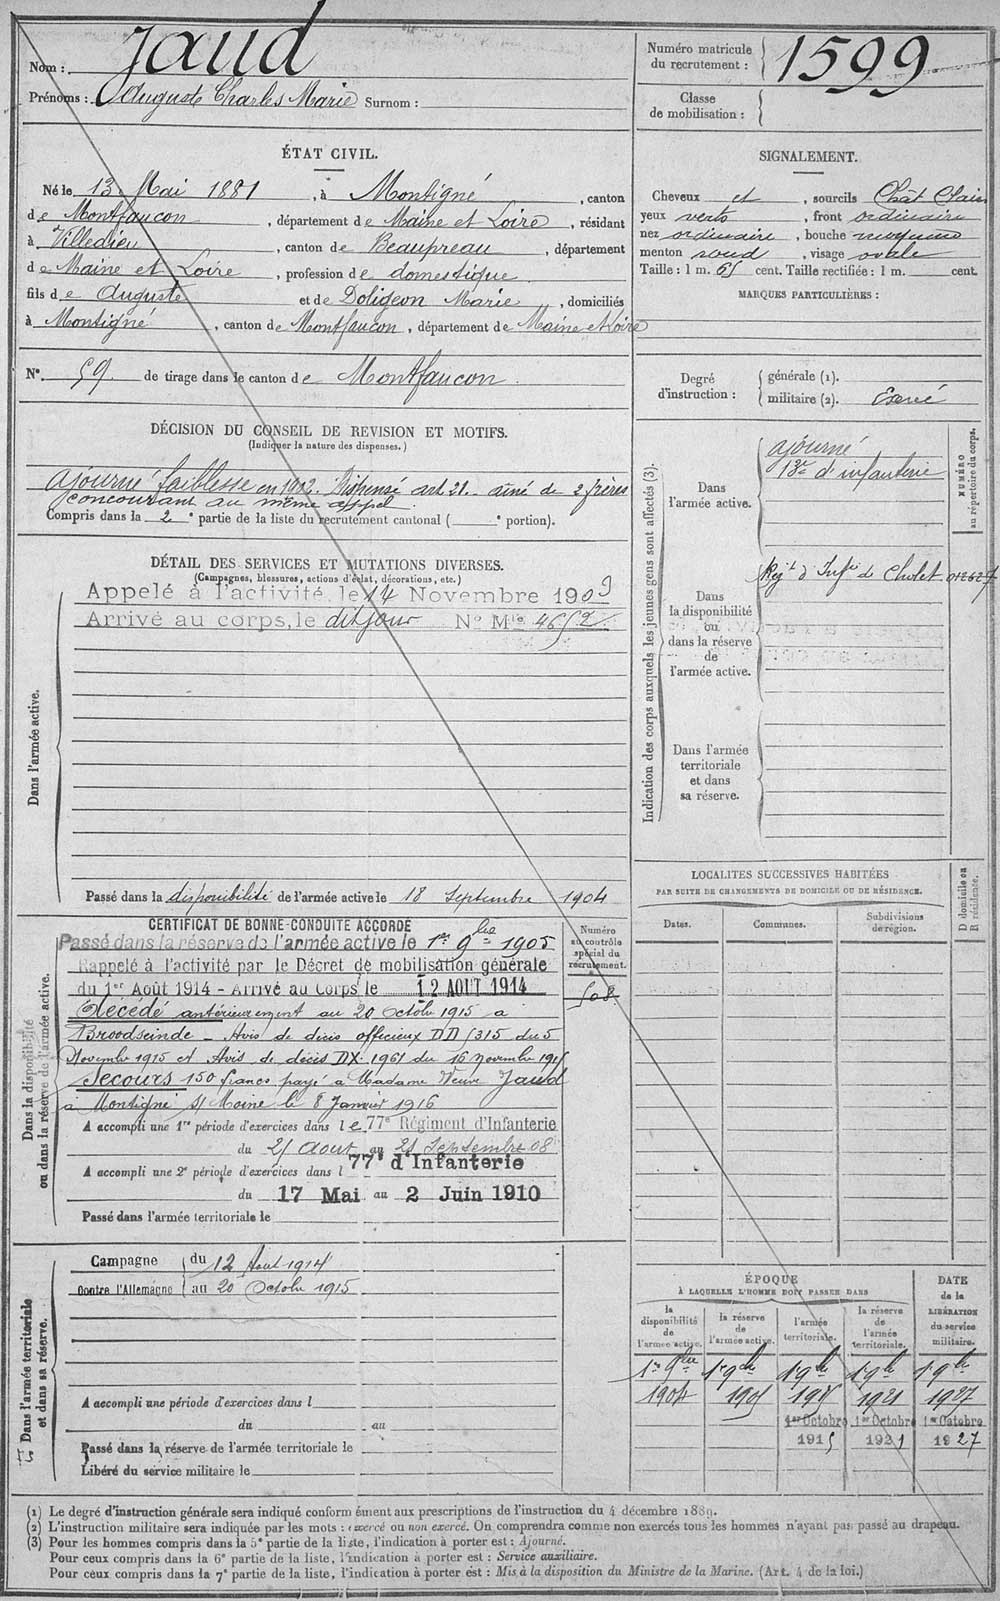 Nom : Jaud
Prénoms : Auguste Charles Marie Surnom :
Numéro matricule du recrutement : 1599
Classe de mobilisation :
ÉTAT CIVIL.
Né le 13 Mai 1881, à Montigné, canton
de Montfaucon, département de Maine et Loire, résidant
à Villedieu, canton de Beaupreau, département
de Maine et Loire, profession de domestique
fils de Auguste et de Doligeon Marie, domiciliés
à Montigné, canton de Montfaucon, département de Maine et Loire
N° 59 de tirage dans le canton de Montfaucon.
SIGNALEMENT.
Cheveux et, sourcils Chât Clair
yeux verts, front ordinaire
nez ordinaire, bouche moyenne
menton rond, visage ovale
Taille : 1 m. 65 cent. Taille rectifiée : 1 m. cent.
MARQUES PARTICULIÈRES :
Degré d'instruction :
générale (1).
militaire (2). Exercé
DÉCISION DU CONSEIL DE REVISION ET MOTIFS.
(Indiquer la nature des dispenses.)
ajourné faiblesse en 1902. Dispensé art. 21. ainé de 2 frères
concourant au même appel.
Compris dans la 2e partie de la liste du recrutement cantonal ( e portion).
DÉTAIL DES SERVICES ET MUTATIONS DIVERSES.
(Campagnes, blessures, actions d'éclat, décorations, etc.)
Dans l'armée active.
Appelé à l'activité, le 14 Novembre 1903
Arrivé au corps, le dit jour N° Mle 4652
Passé dans la disponibilité de l'armée active le 18 Septembre 1904
Indication des corps auxquels les jeunes gens sont affectés (3).
NUMÉRO au répertoire du corps.
Dans l'armée active.
ajourné
13e d'infanterie
Dans la disponibilité ou dans la réserve de l'armée active.
Régt d'Infie de Cholet 012627
Dans l'armée territoriale et dans sa réserve.
Dans la disponibilité ou dans la réserve de l'armée active.
CERTIFICAT DE BONNE-CONDUITE ACCORDÉ
Passé dans la réserve de l'armée active le 1er 9bre 1905
Rappelé à l'activité par le Décret de mobilisation générale
du 1er Août 1914 - Arrivé au Corps le 12 AOUT 1914
Décédé antérieurement au 20 Octobre 1915 à
Broodseinde - Avis de décès officieux DD 5315 du 5
Novembre 1915 et Avis de décès DX. 1961 du 16 novembre 1915
Secours 150 francs payé à Madame Veuve Jaud
à Montigné s/ Moine le 8 Janvier 1916
A accompli une 1re période d'exercices dans le 77e Régiment d'Infanterie
du 25 Aout au 21 Septembre 08
A accompli une 2e période d'exercices dans l 77e d'Infanterie
du 17 Mai au 2 Juin 1910
Passé dans l'armée territoriale le
Numéro au contrôle spécial du recrutement.
508
LOCALITÉS SUCCESSIVES HABITÉES
PAR SUITE DE CHANGEMENTS DE DOMICILE OU DE RÉSIDENCE.
Dates. Communes. Subdivisions de région. D domicile ou R résidence.
Dans l'armée territoriale et dans sa réserve.
Campagne du 12 Août 1914
contre l'Allemagne au 20 Octobre 1915
A accompli une période d'exercices dans l
du au
Passé dans la réserve de l'armée territoriale le
Libéré du service militaire le
ÉPOQUE
À LAQUELLE L'HOMME DOIT PASSER DANS
la disponibilité de l'armée active.
la réserve de l'armée active.
l'armée territoriale.
la réserve de l'armée territoriale.
DATE de la LIBÉRATION du service militaire.
1er 9bre 1er 9bre 1er 9bre 1er 9bre 1er 9bre
1904 1905 1915 1921 1927
1er Octobre 1er Octobre 1er Octobre
1915 1921 1927
(1) Le degré d'instruction générale sera indiqué conformément aux prescriptions de l'instruction du 4 décembre 1889.
(2) L'instruction militaire sera indiquée par les mots : exercé ou non exercé. On comprendra comme non exercés tous les hommes n'ayant pas passé au drapeau.
(3) Pour les hommes compris dans la 5e partie de la liste, l'indication à porter est : Ajourné.
Pour ceux compris dans la 6e partie de la liste, l'indication à porter est : Service auxiliaire.
Pour ceux compris dans la 7e partie de la liste, l'indication à porter est : Mis à la disposition du Ministre de la Marine. (Art. 4 de la loi.)